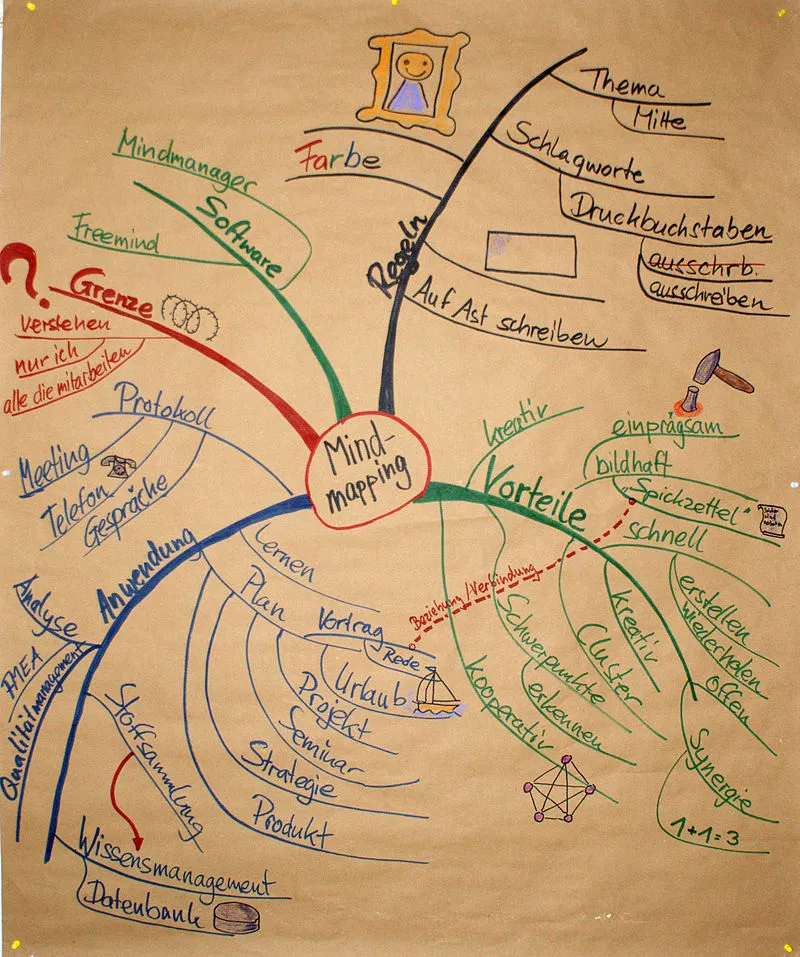 Mind-
mapping
Regeln
Thema
Mitte
Schlagworte
Druckbuchstaben
ausschrb.
ausschreiben
Farbe
Auf Ast schreiben
Software
Mindmanager
Freemind
?
Grenze
verstehen
nur ich
alle die mitarbeiten
Vorteile
kreativ
einprägsam
bildhaft
"Spickzettel"
schnell
erstellen
wiederholen
offen
Synergie
1+1=3
kreativ
Cluster
Schwerpunkte
erkennen
kooperativ
Beziehung/Verbindung
Anwendung
Protokoll
Meeting
Telefon
Gespräche
Lernen
Plan
Vortrag
Rede
Urlaub
Projekt
Seminar
Strategie
Produkt
Analyse
FMEA
Qualitätmanagement
Stoffsammlung
Wissensmanagement
Datenbank